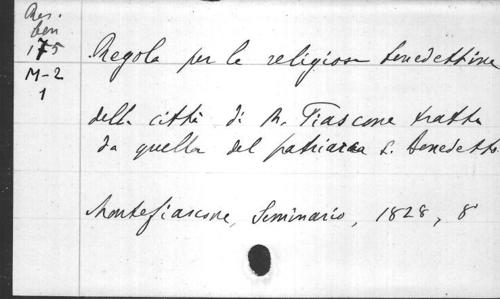 Res.
ben
175
M-2
1
Regola per le religiose benedettine
della città di M. Fiascone tratta
da quella del patriarca S. Benedetto
Montefiascone, Seminario, 1828, 8°